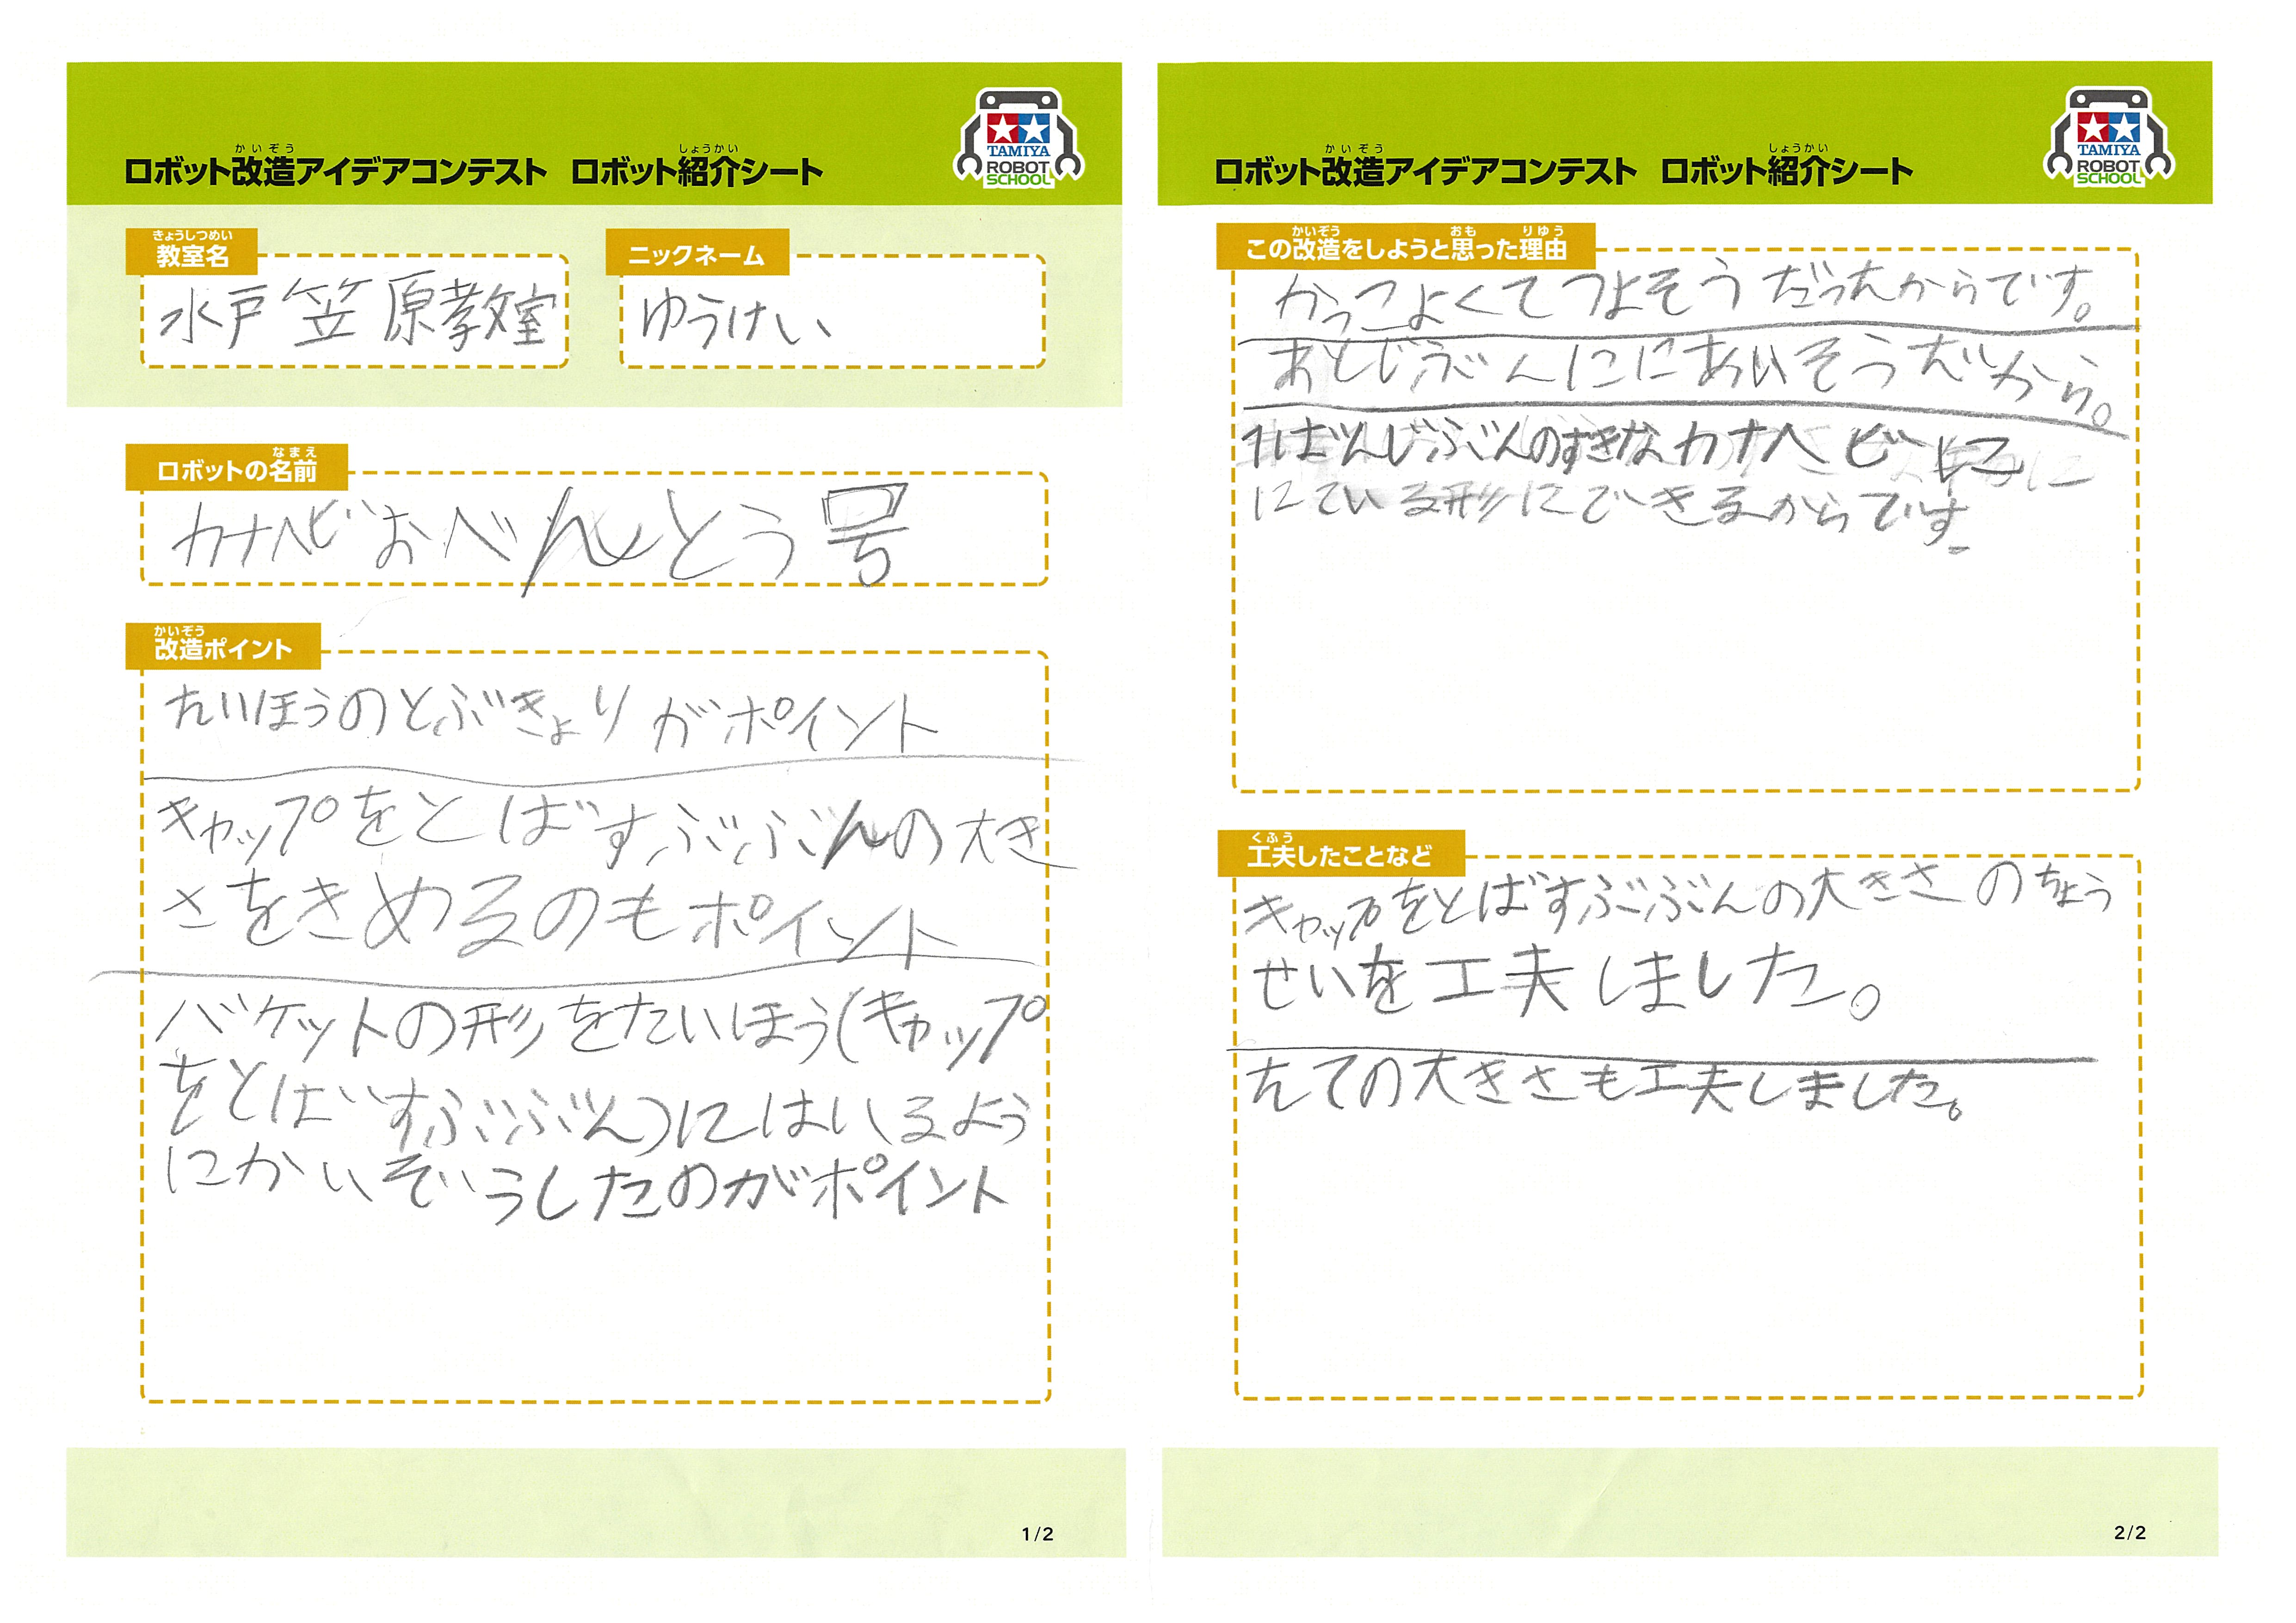 かいぞう しょうかい
ロボット改造アイデアコンテスト ロボット紹介シート
TAMIYA
ROBOT
SCHOOL
きょうしつめい
教室名
水戸笠原教室
ニックネーム
ゆうけい
なまえ
ロボットの名前
カナヘビおべんとう号
かいぞう
改造ポイント
たいほうのとぶきょりがポイント
キャップをとばすぶぶんの大き
さをきめるのもポイント
バケットの形をたいほう(キャップ
をとばすぶぶん)にはいるよう
にかいぞうしたのがポイント
1/2
かいぞう しょうかい
ロボット改造アイデアコンテスト ロボット紹介シート
TAMIYA
ROBOT
SCHOOL
かいぞう おも りゆう
この改造をしようと思った理由
かっこよくてつよそうだったからです。
あとじぶんににあいそうだから。
1ばんじぶんのすきなカナヘビに
にている形にできるからです
くふう
工夫したことなど
キャップをとばすぶぶんの大きさのちょう
せいを工夫しました。
たての大きさも工夫しました。
2/2